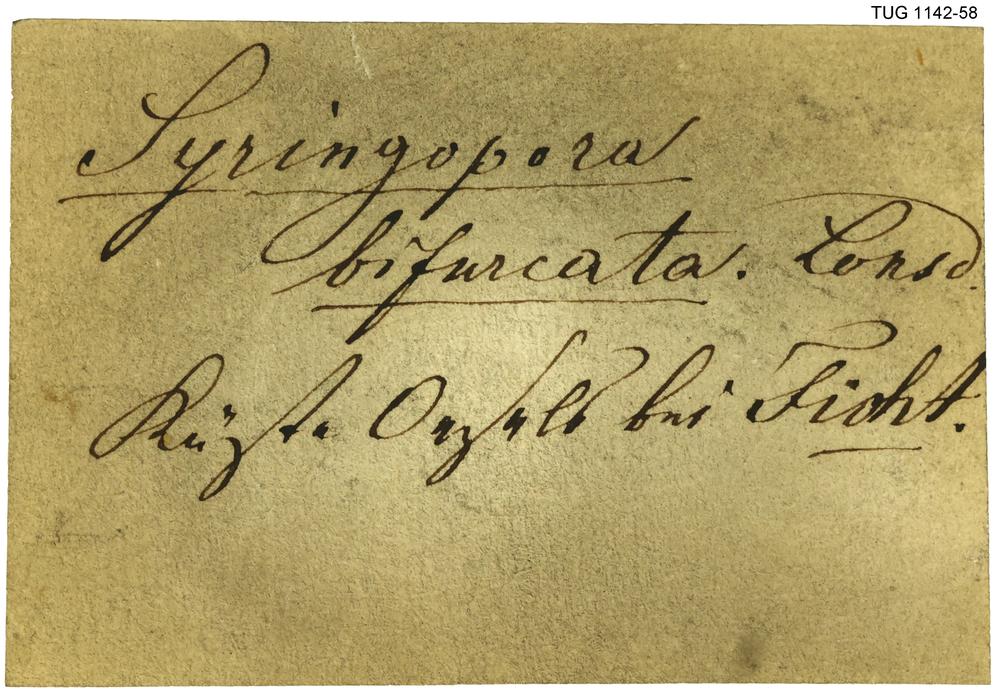 TUG 1142-58
Syringopora
bifurcata. Lonsd.
Küste Oesels bei Ficht.